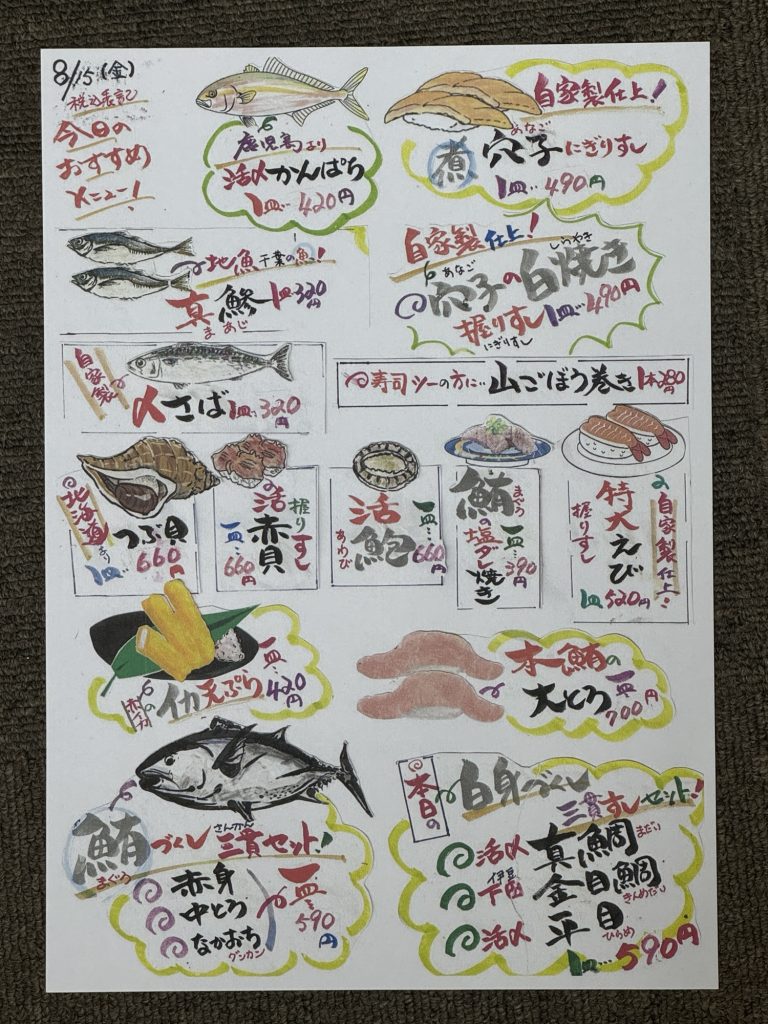 8/15(金)
税込表記
今日の
おすすめ
メニュー!
鹿児島より
活〆かんぱち
1皿…420円
自家製仕上!
あなご
煮 穴子にぎりずし
1皿…490円
地魚 千葉の魚!
真鯵 1皿320円
まあじ
自家製仕上!
あなご しらやき
穴子の白焼き
握りずし 1皿…490円
にぎりずし
自家製
〆さば 1皿…320円
寿司ツーの方に… 山ごぼう巻き 1本280円
北海道より
つぶ貝
1皿…660円
握りずし
活赤貝
一皿…660円
活鮑
あわび
一皿…660円
まぐろ
鮪の塩ダレ焼き
一皿…390円
自家製仕上!
特大えび
握りずし
1皿…520円
イカ天ぷら
一皿…420円
本鮪の
大とろ 一皿
700円
鮪づくし 三貫セット!
まぐろ さんかん
赤身
中とろ
なかおち
グンカン
一皿…590円
本日の
白身づくし
三貫ずしセット!
活〆 真鯛 まだい
伊豆
下田 金目鯛 きんめだい
活〆 平目 ひらめ
1皿…590円